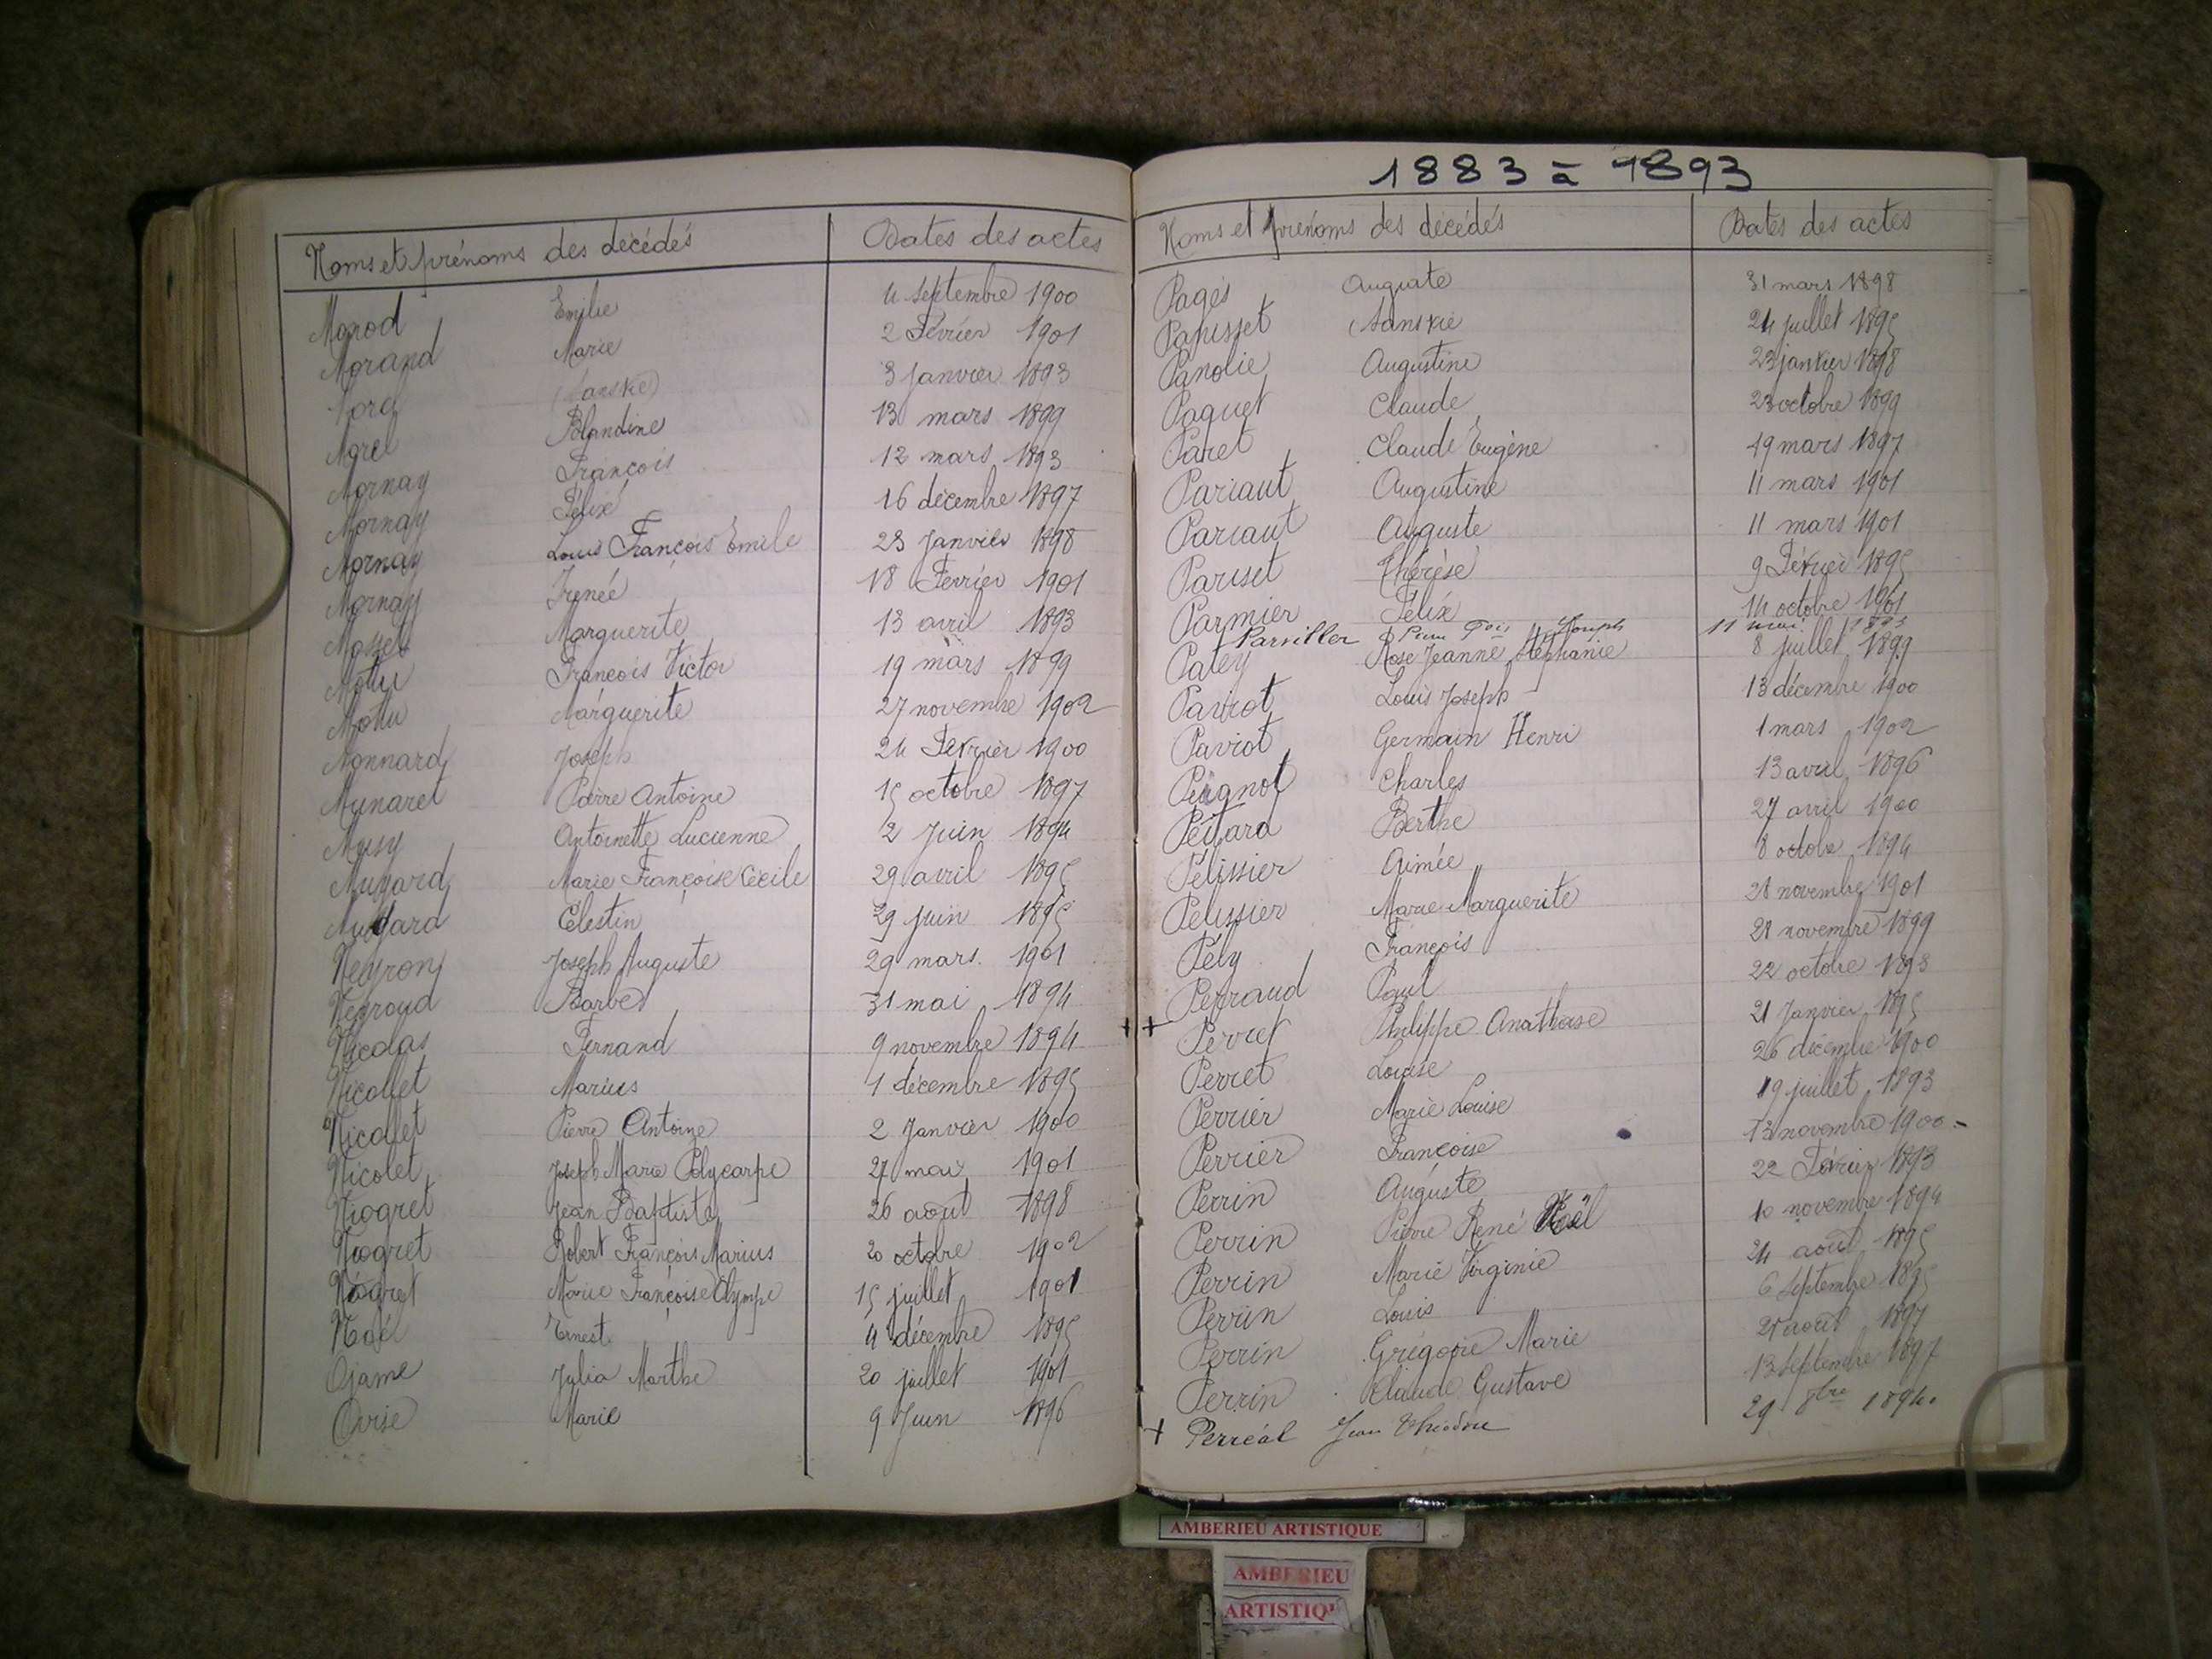 Noms et prénoms des décédés Dates des actes
Morod Emilie 4 septembre 1900
Morand Marie 2 Février 1901
3 Janvier 1893
Morel Blandine 13 mars 1899
Mornay François 12 mars 1893
Mornay Félix 16 décembre 1897
Mornay Louis François Emile 23 Janvier 1898
Mornay Irenée 18 Fevrier 1901
Marguerite 13 avril 1893
François Victor 19 mars 1899
Marguerite 27 novembre 1902
Monnard Joseph 24 Fevrier 1900
Munaret Pierre Antoine 15 octobre 1897
Musy Antoinette Lucienne 2 Juin 1894
Mugard Marie Françoise Cécile 29 avril 1895
Célestin 29 Juin 1895
Neyron Joseph Auguste 29 mars 1901
Neyroud Barbe 31 mai 1894
Nicolas Fernand 9 novembre 1894
Nicollet Marius 1 décembre 1895
Nicollet Pierre Antoine 2 Janvier 1900
Nicolet Joseph Marie Polycarpe 27 mai 1901
Niogret Jean Baptiste 26 août 1898
Niogret Robert François Marius 20 octobre 1902
Niogret Marie Françoise Olympe 15 juillet 1901
Noël Ernest 4 décembre 1895
Ojame Julia Marthe 20 juillet 1901
Ovise Marie 9 Juin 1896
1883 à 1893
Noms et prénoms des décédés Dates des actes
Pagès Auguste 31 mars 1898
Papisset 24 juillet 1895
Panolie Augustine 23 janvier 1898
Paquet Claude 23 octobre 1899
Paret Claude Eugène 19 mars 1897
Pariaut Augustine 11 mars 1901
Pariaut Auguste 11 mars 1901
Pariset Thérèse 9 Février 1895
Parmier Félix 14 octobre 1901
Parviller Joseph 11 mai
Patey Rose Jeanne Stéphanie 8 juillet 1899
Paviot Louis Joseph 13 décembre 1900
Paviot Germain Henri 1 mars 1902
Peignot Charles 13 avril 1896
Peitard Berthe 27 avril 1900
Pélissier Aimée 8 octobre 1894
Pelissier Marie Marguerite 28 novembre 1901
Pély François 21 novembre 1899
Perraud Paul 22 octobre 1898
+ + Perret Philippe Anathase 21 Janvier 1895
Perret Louise 26 décembre 1900
Perrier Marie Louise 19 juillet 1893
Perrier Françoise 13 novembre 1900
Perrin Auguste 22 Février 1893
Perrin Pierre René Noël 10 novembre 1894
Perrin Marie Virginie 24 août 1895
Perrin Louis 6 septembre 1895
Perrin Grégoire Marie 21 août 1897
Perrin Claude Gustave 13 septembre 1897
+ Perréal Jean Théodore 29 8bre 1894
AMBERIEU ARTISTIQUE
AMBERIEU
ARTISTIQU